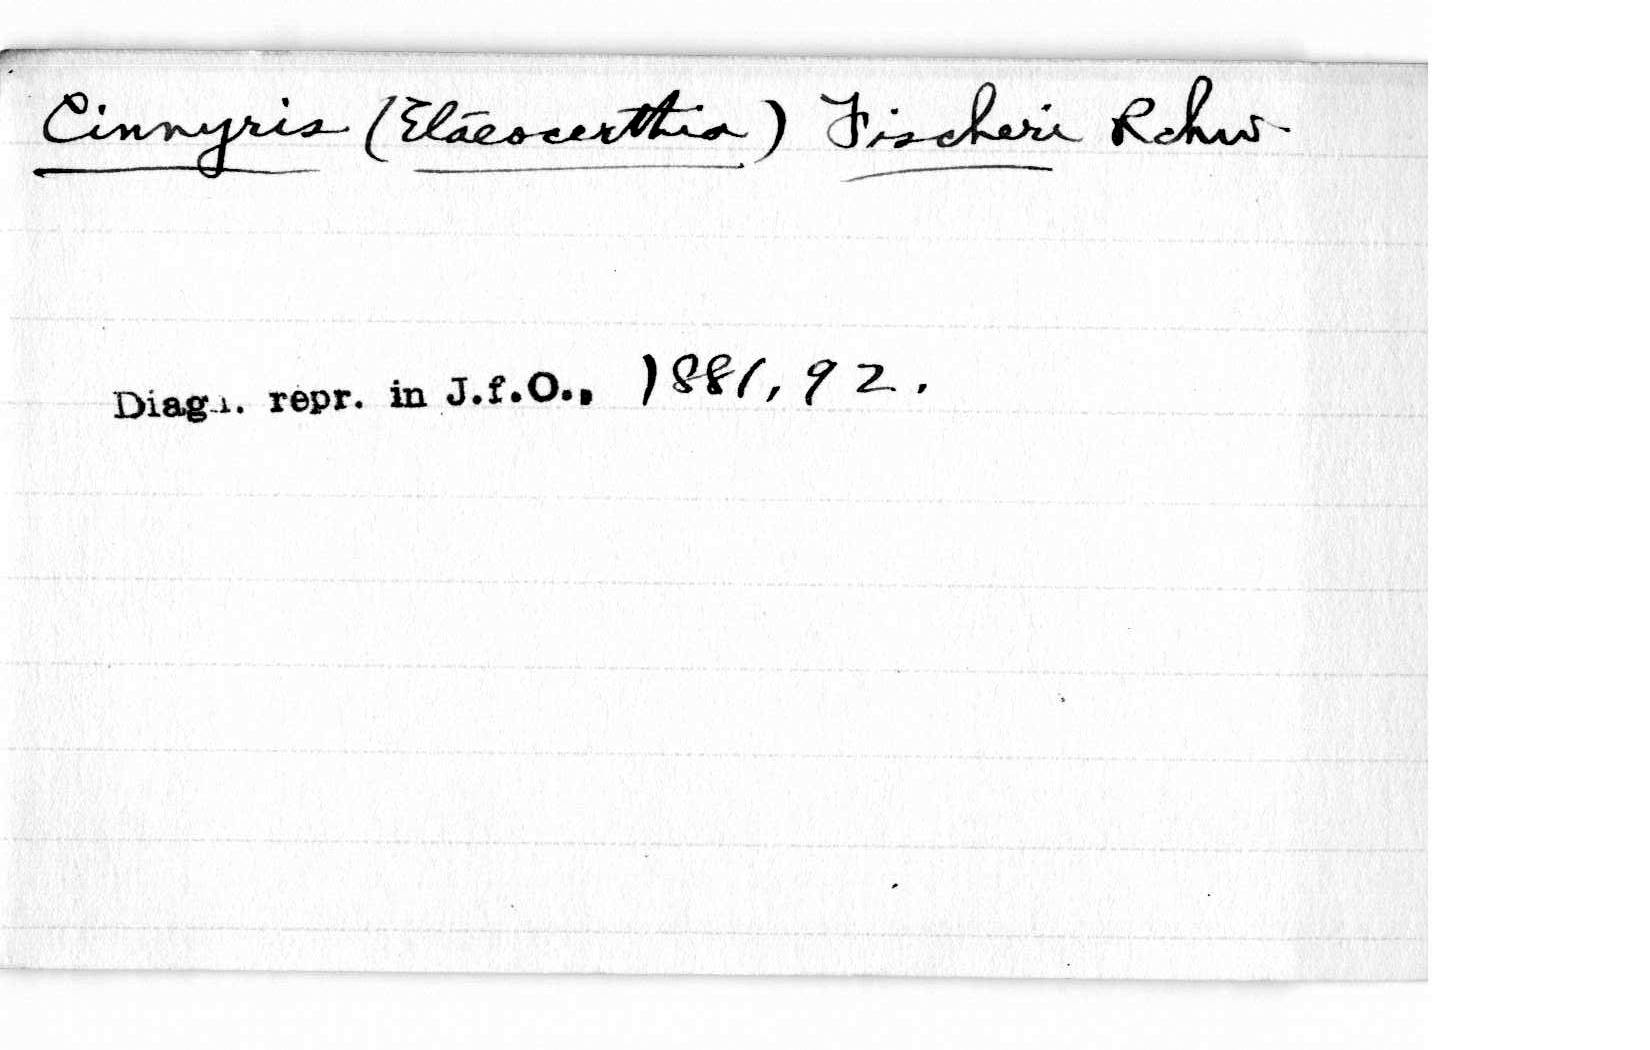 Cinnyris (Elaeocerthia) Fischeri Rchw.
Diagn. repr. in J.f.O., 1881, 92.